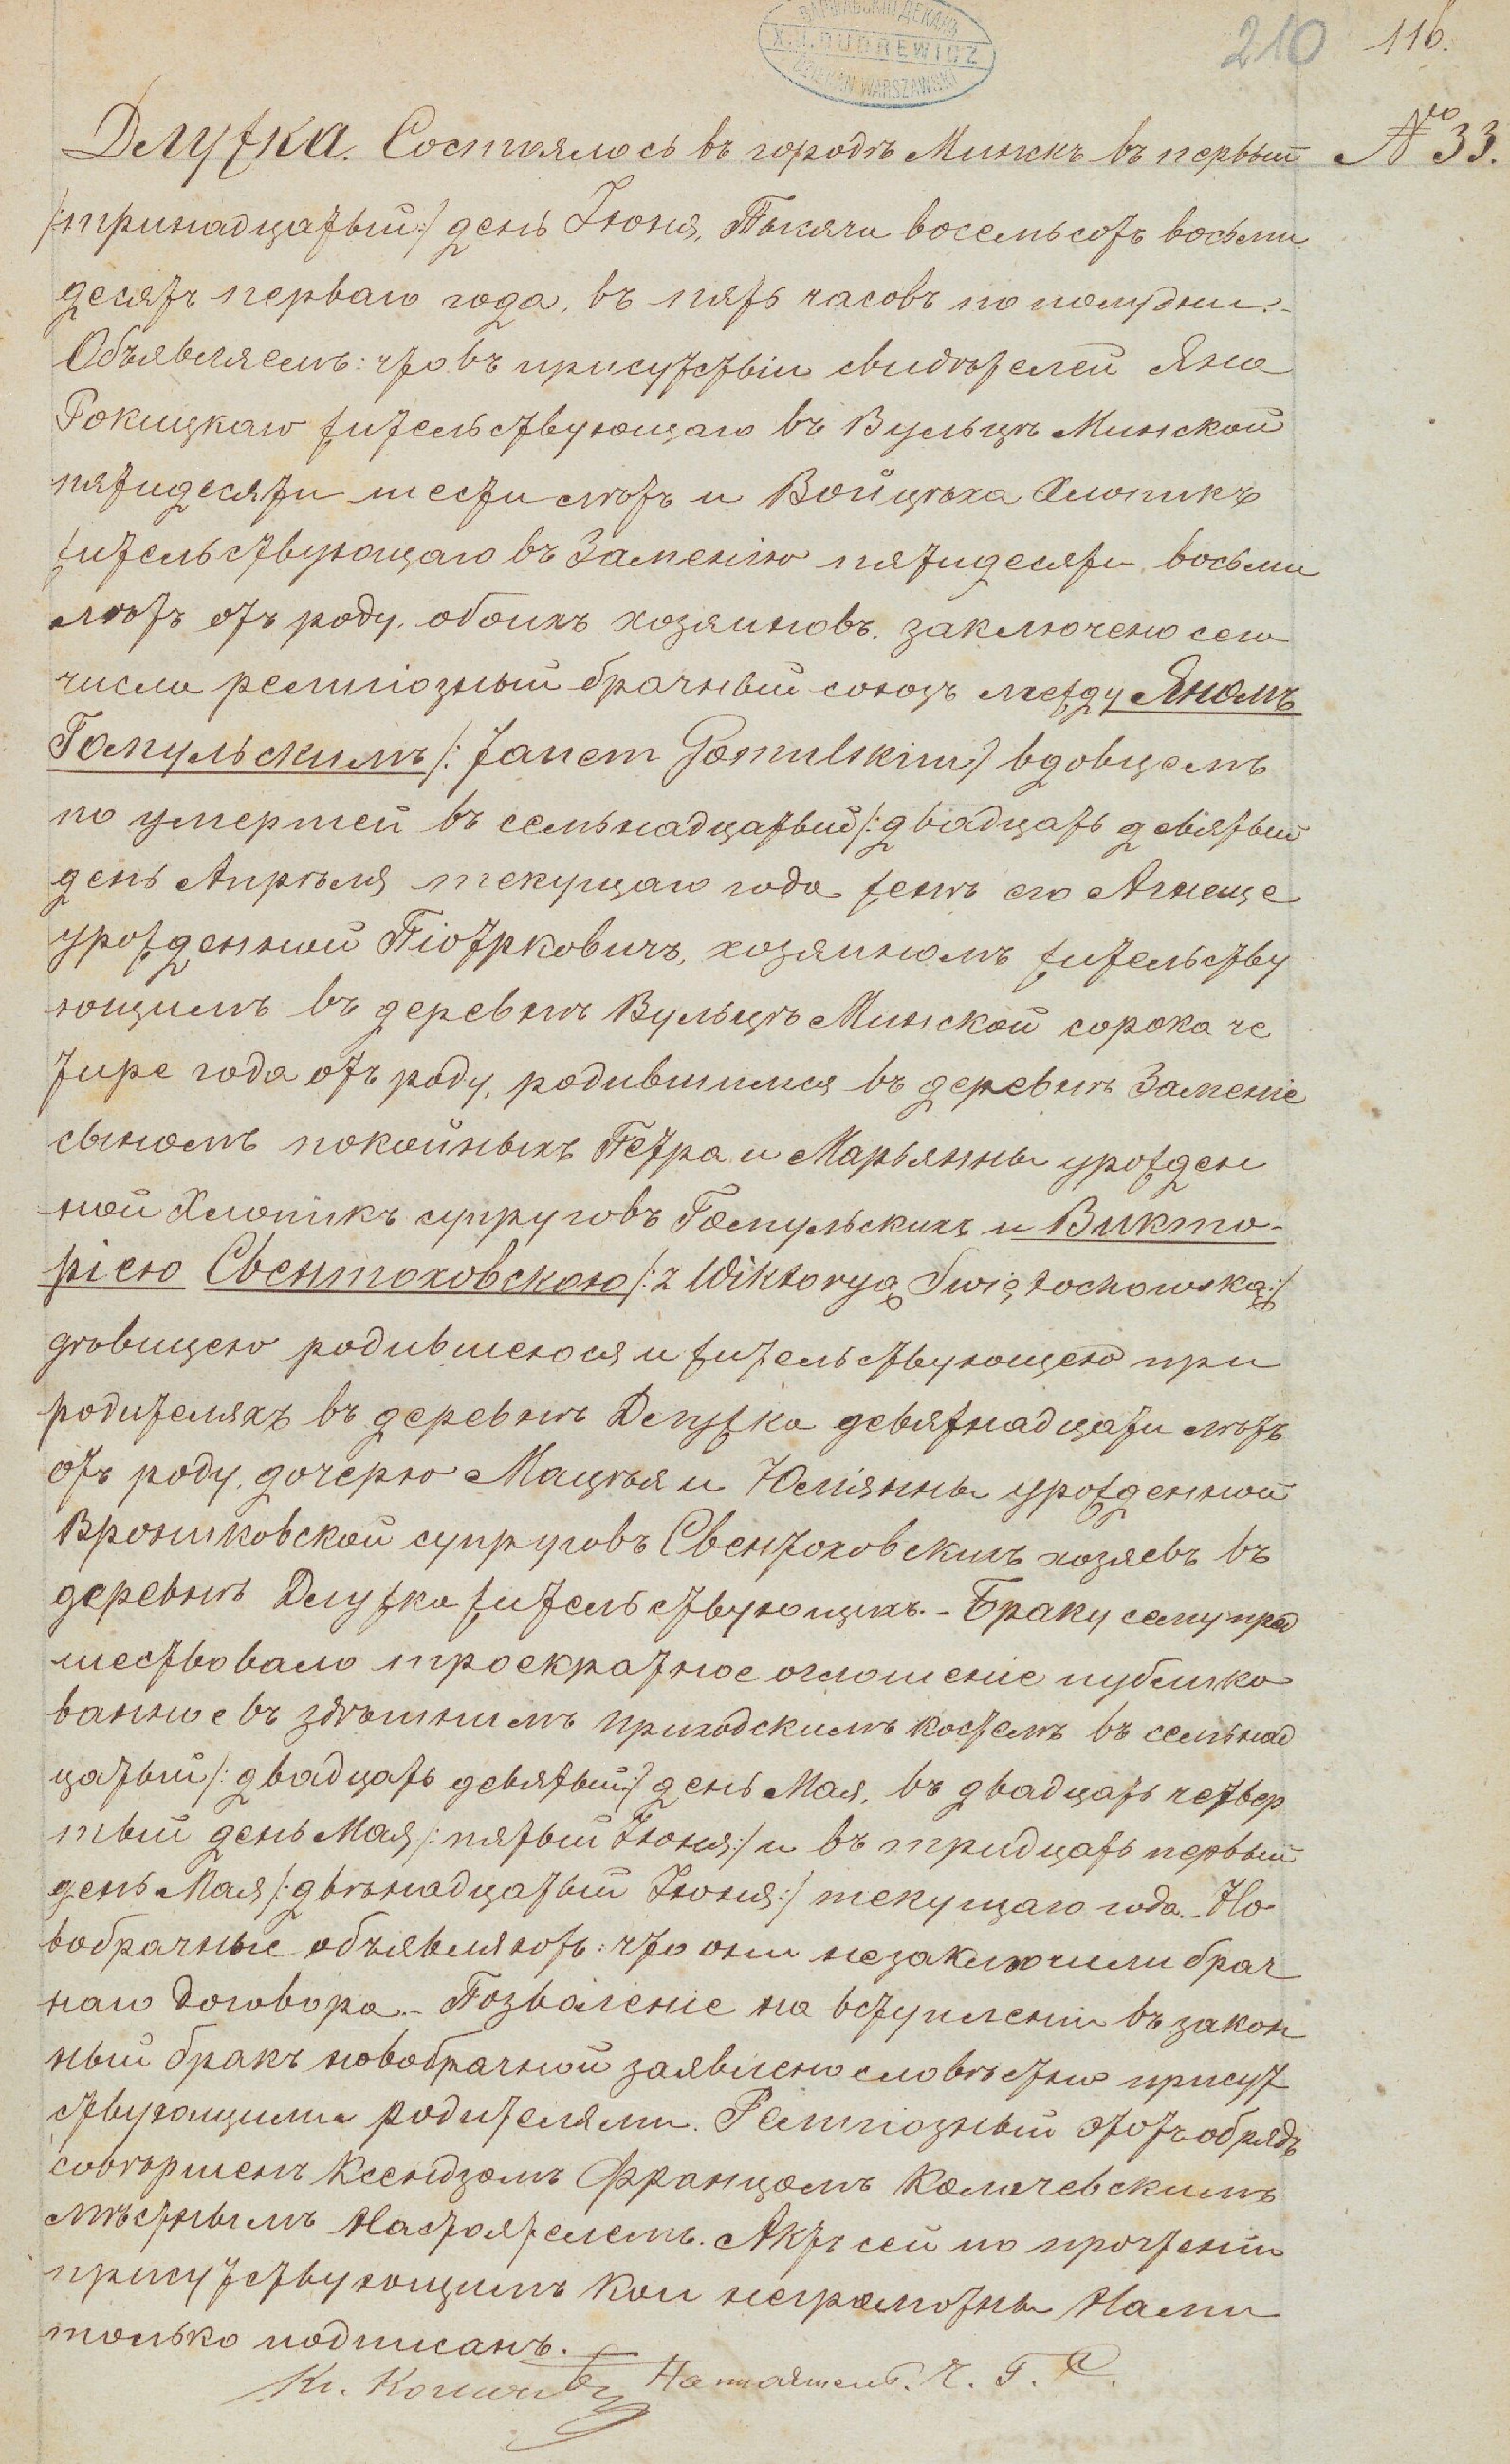 ВАРШАВСКІЙ ДЕКАНЪ
X. J. DUDREWICZ
DZIEKAN WARSZAWSKI
210 116.
Длужка. Состоялось въ городѣ Минскъ въ первый № 33.
/:тринадцатый:/ день Іюня, Тысяча восемьсотъ восьми
десятъ перваго года, въ пять часовъ по полудни.-
Объявляемъ: что въ присутствіи свидѣтелей Яна
Рокицкаго жительствующаго въ Вульцѣ Минской
пятидесяти шести лѣтъ и Войцѣха Хлопикъ
жительствующаго въ Заменію пятидесяти восьми
лѣтъ отъ роду, обоихъ хозяиновъ, заключено сего
числа религіозный брачный союзъ между Яномъ
Гомульскимъ /: Janem Gomulskim:/ вдовцемъ
по умершей въ семьнадцатый /:двадцать девятый
день Апрѣля текущаго года женѣ его Агнеще
урожденной Піотрковичъ, хозяиномъ жительству
ющимъ въ деревнѣ Вульцѣ Минской сорока че
тире года отъ роду, родившимся въ деревнѣ Заменіе
сыномъ покойныхъ Петра и Марьянны урожден
ной Хлопикъ супруговъ Гомульскихъ и Викто-
ріею Свентоховскою /: z Wiktoryą Swiętochowską:/
дѣвицею родившеюся и жительствующею при
родителяхъ въ деревнѣ Длужка девятнадцати лѣтъ
отъ роду, дочерю Мацѣя и Юліянны урожденной
Врониковской супруговъ Свентоховскихъ хозяевъ въ
деревнѣ Длужка жительствующихъ.- Браку сему пред
шествовало троекратное оглошеніе публико
ванное въ здѣшнимъ приходскимъ костелѣ въ семьнад
цатый /: двадцать девятый:/ день Мая, въ двадцать четвер
тый день Мая /: пятый Іюня:/ и въ тридцать первый
день Мая /: двѣнадцатый Іюня:/ текущаго года.- Но
вобрачные объявляютъ: что они незаключили брач
наго договора.- Позволеніе на вступленіи въ закон
ный бракъ новобрачной заявлено словѣстно присут
ствующими родителями. Религіозный этотъ обрядъ
совѣршенъ Ксендзомъ Францомъ Коначевскимъ
мѣстнымъ Настоятелемъ. Актъ сей по прочтеніи
присутствующимъ кои неграмотны Нами
только подписанъ.
Настоятель.